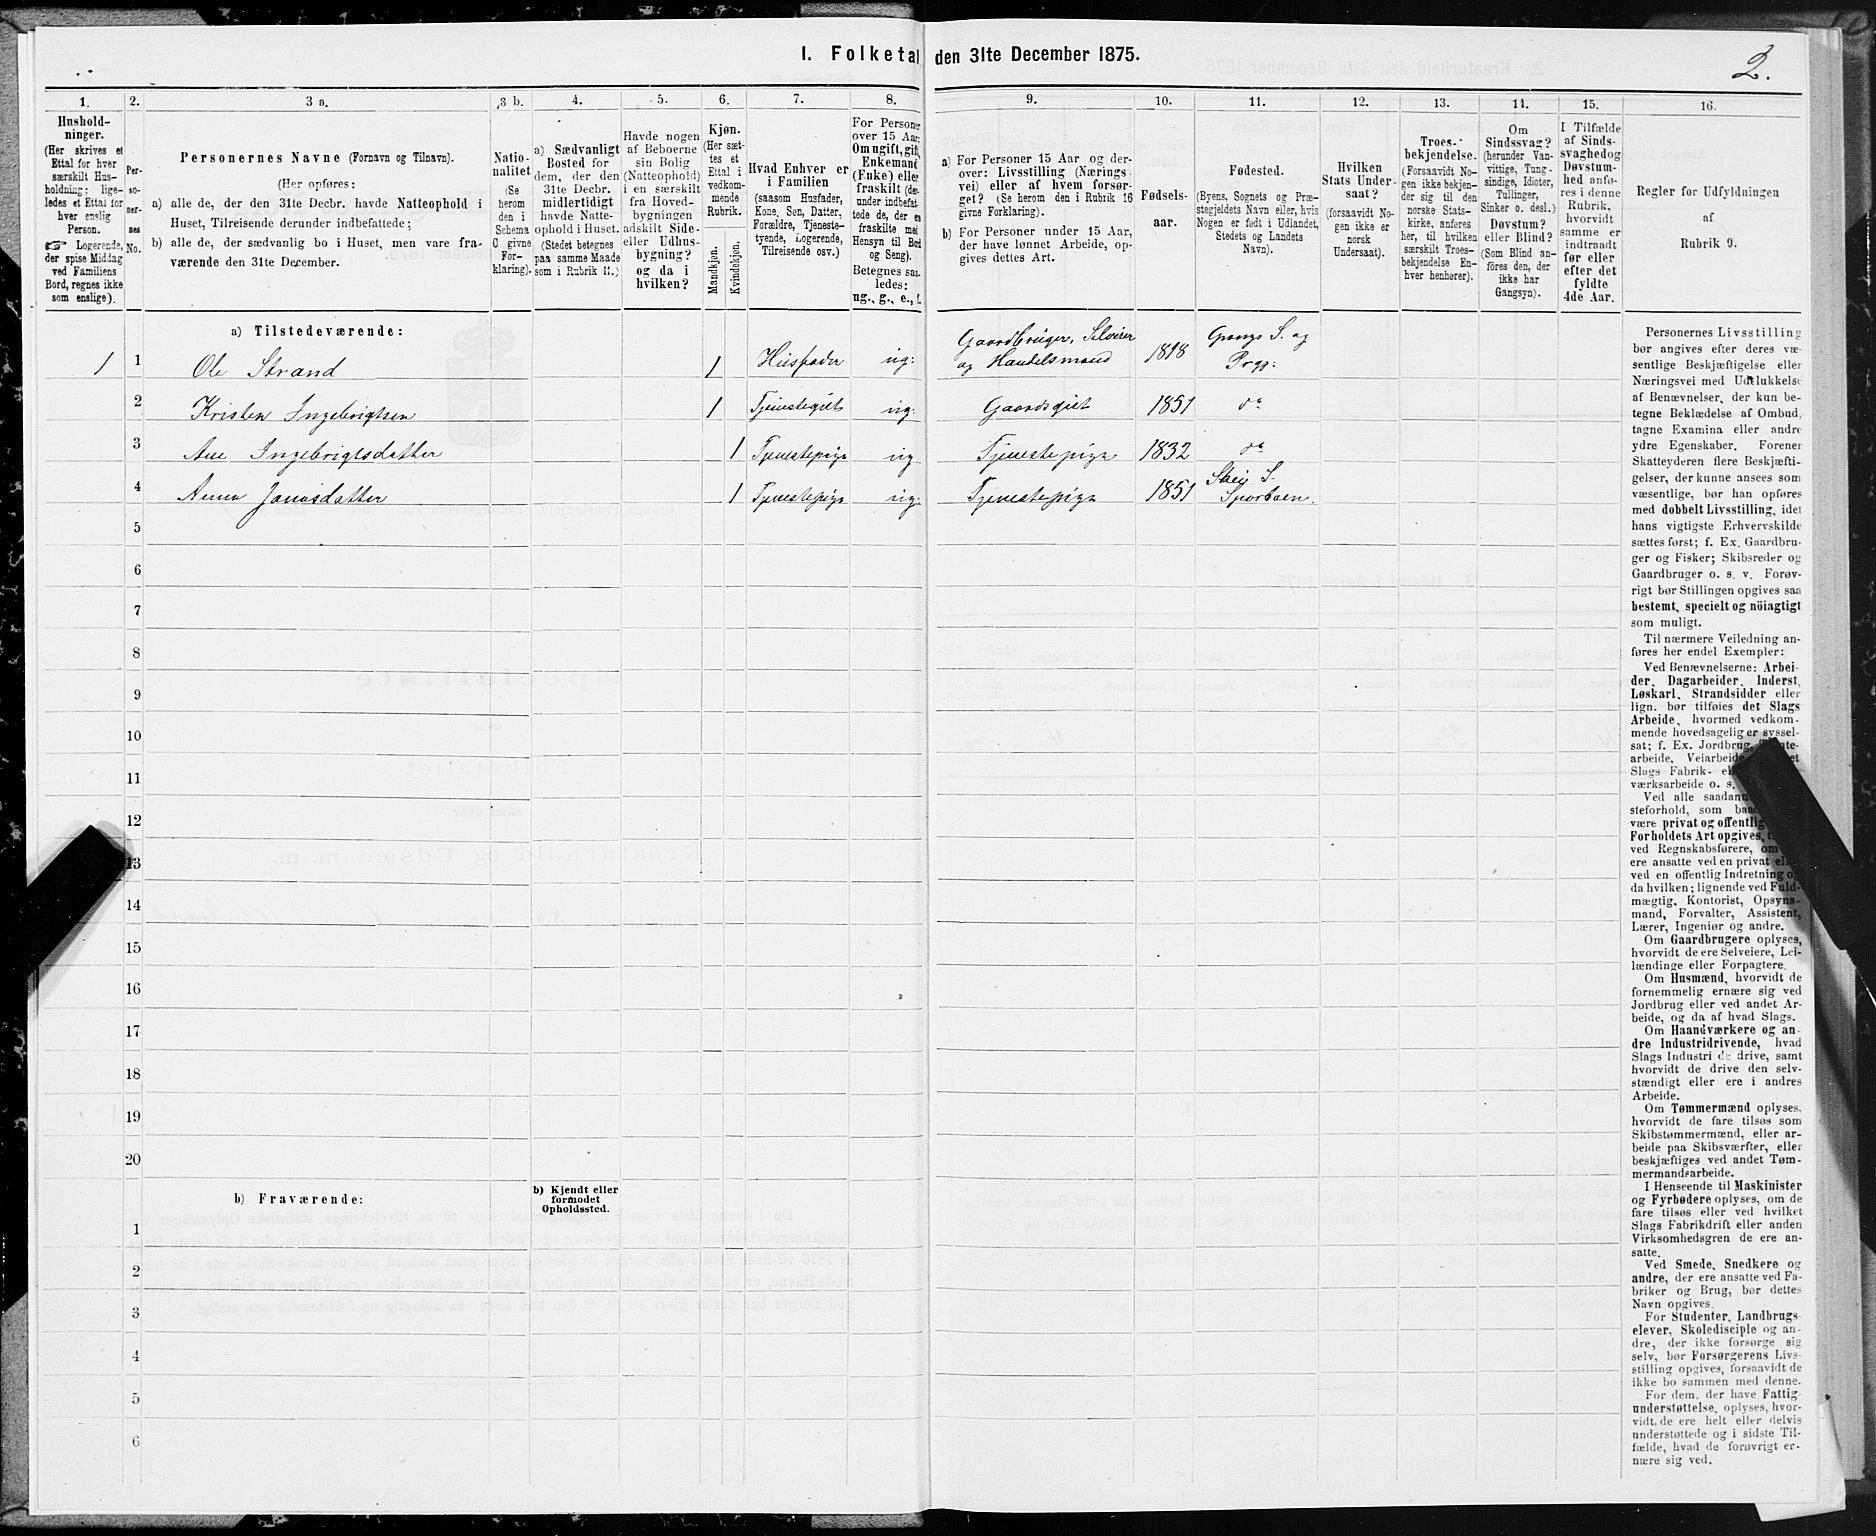 I. Folketal den 31te December 1875.
2.
1.
2.
3 a.
3 b.
4.
5.
6.
7.
8.
9.
10.
11.
12.
13.
14.
15.
16.
Hushold-
ninger.
(Her skrives et
Ettal for hver
særskilt Hus-
holdning; lige-
ledes et Ettal for
hver enslig
Person.
☞ Logerende,
der spise Middag
ved Familiens
Bord, regnes ikke
som enslige).
Per-
so-
ner-
nes
No.
Personernes Navne (Fornavn og Tilnavn).
(Her opføres:
a) alle de, der den 31te Decbr. havde Natteophold i
Huset, Tilreisende derunder indbefattede;
b) alle de, der sædvanlig bo i Huset, men vare fra-
værende den 31te December.
Natio-
nalitet
(Se
herom
den i
Schema
C givne
For-
klaring).
a) Sædvanligt
Bosted for
dem, der den
31te Decbr.
midlertidigt
havde Natte-
ophold i Huset.
(Stedet betegnes
paa samme Maade
som i Rubrik 11.)
Havde nogen
af Beboerne
sin Bolig
(Natteophold)
i en særskilt
fra Hoved-
bygningen
adskilt Side-
eller Udhus-
bygning?
og da i
hvilken?
Kjøn.
(Her sæt-
tes et
Ettal i
vedkom-
mende
Rubrik.
Mandkjøn.
Kvindekjøn.
Hvad Enhver er
i Familien
(saasom Husfader,
Kone, Søn, Datter,
Forældre, Tjeneste-
tyende, Logerende,
Tilreisende osv.)
For Personer
over 15 Aar:
Om ugift, gift,
Enkemand
(Enke) eller
fraskilt (der-
under indbefat-
tede de, der ere
fraskilte med
Hensyn til Bord
og Seng).
Betegnes saa-
ledes:
ug., g., e., f.
a) For Personer 15 Aar og der-
over: Livsstilling (Nærings-
vei) eller af hvem forsør-
get? (Se herom den i Rubrik 16
givne Forklaring).
b) For Personer under 15 Aar,
der have lønnet Arbeide, op-
gives dettes Art.
Fødsels-
aar.
Fødested.
(Byens, Sognets og Præ-
stegjeldets Navn eller, hvis
Nogen er født i Udlandet,
Stedets og Landets
Navn).
Hvilken
Stats Under-
saat?
(forsaavidt No-
gen ikke er
norsk
Undersaat).
Troes-
bekjendelse.
(Forsaavidt No-
gen ikke bekjen-
der sig til den
norske Stats-
kirke, anføres
her, til hvilken
særskilt Troes-
bekjendelse En-
hver henhører).
Om
Sindssvag?
(herunder Van-
vittige, Tung-
sindige, Idioter,
Tullinger,
Sinker o. desl.)
Døvstum?
eller Blind?
(Som Blind an-
føres den, der
ikke har
Gangsyn).
I Tilfælde
af Sinds-
svaghed og
Døvstum-
hed anfø-
res i denne
Rubrik,
hvorvidt
samme er
indtraadt
før eller
efter det
fyldte
4de Aar.
Regler for Udfyldningen
af
Rubrik 9.
a) Tilstedeværende:
1 1 Ole Strand 1 Husfader ug: Gaardbruger, Selveier og Handelsmand 1818 Grongs S. og Prgj:
2 Kristen Ingebrigtsen 1 Tjenestegut ug: Gaardsgut 1851 do
3 Ane Ingebrigtsdatter 1 Tjenestepige ug Tjenestepige 1832 do
4 Anna Jonasdatter 1 Tjenestepige ug: Tjenestepige 1851 S. Sparboen.
5
6
7
8
9
10
11
12
13
14
15
16
17
18
19
20
b) Fraværende:
b) Kjendt eller
formodet
Opholdssted.
1
2
3
4
5
6
Personernes Livsstilling
bør angives efter deres væ-
sentlige Beskjæftigelse eller
Næringsvei med Udelukkelse
af Benævnelser, der kun be-
tegne Beklædelse af Ombud,
tagne Examina eller andre
ydre Egenskaber. Forener
Skatteyderen flere Beskjæfti-
gelser, der kunne ansees som
væsentlige, bør han opføres
med dobbelt Livsstilling, idet
hans vigtigste Erhvervskilde
sættes først; f. Ex. Gaardbru-
ger og Fisker; Skibsreder og
Gaardbruger o. s. v. Forøv-
rigt bør Stillingen opgives saa
bestemt, specielt og nöiagtigt
som muligt.
Til nærmere Veiledning an-
føres her endel Exempler:
Ved Benævnelserne: Arbei-
der, Dagarbeider, Inderst,
Løskarl, Strandsidder eller
lign. bør tilføies det Slags
Arbeide, hvormed vedkom-
mende hovedsagelig er syssel-
sat; f. Ex. Jordbrug,
arbeide, Veiarbeide
Slags Fabrik-
værksarbeide o. s.
Ved alle saadan
steforhold, som
være privat og offentlig
Forholdets Art opgives,
ved Regnskabsførere, om
ere ansatte ved en privat
ved en offentlig Indretning
da hvilken; lignende ved Fuld-
mægtig, Kontorist, Opsyns-
mand, Forvalter, Assistent,
Lærer, Ingeniør og andre.
Om Gaardbrugere oplyses,
hvorvidt de ere Selveiere, Lei-
lændinge eller Forpagtere.
Om Husmænd, hvorvidt de
fornemmelig ernære sig ved
Jordbrug eller ved andet Ar-
beide, og da af hvad Slags.
Om Haandværkere og an-
dre Industridrivende, hvad
Slags Industri de drive, samt
hvorvidt de drive den selv-
stændigt eller ere i andres
Arbeide.
Om Tømmermænd oplyses,
hvorvidt de fare tilsøs som
Skibstømmermænd, eller ar-
beide paa Skibsværfter, eller
beskjæftiges ved andet Tøm-
mermandsarbeide.
I Henseende til Maskinister
og Fyrbødere oplyses, om de
fare tilsøs eller ved hvilket
Slags Fabrikdrift eller anden
Virksomhedsgren de ere an-
satte.
Ved Smede, Snedkere og
andre, der ere ansatte ved Fa-
briker og Brug, bør dettes
Navn opgives.
For Studenter, Landbrugs-
elever, Skoledisciple og an-
dre, der ikke forsørge sig
selv, bør Forsørgerens Livs-
stilling opgives, forsaavidt de
ikke bo sammen med denne.
For dem, der have Fattig-
understøttelse, oplyses, hvor-
vidt de ere helt eller delvis
understøttede og i sidste Til-
fælde, hvad de forøvrigt er-
nære sig ved.